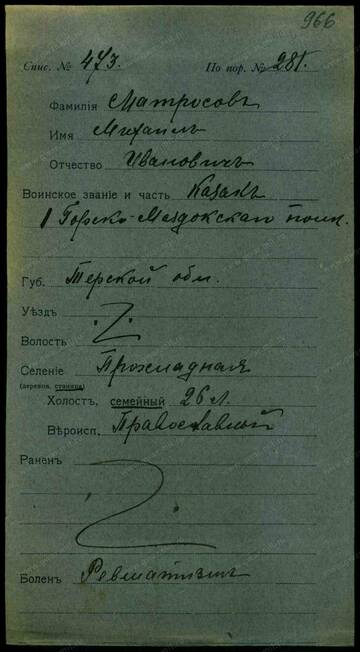 966
Спис. № 473. По пор. № 281.
Фамилія Матросовъ
Имя Михаилъ
Отчество Ивановичъ
Воинское званіе и часть Казакъ
1 Горско-Моздокскаго полк.
Губ. Терской обл.
Уѣздъ
Волость
Селеніе Прохладная
(деревня, станица)
Холостъ, семейный 26 л.
Вѣроисп. Православной
Раненъ
Боленъ Ревматизмъ